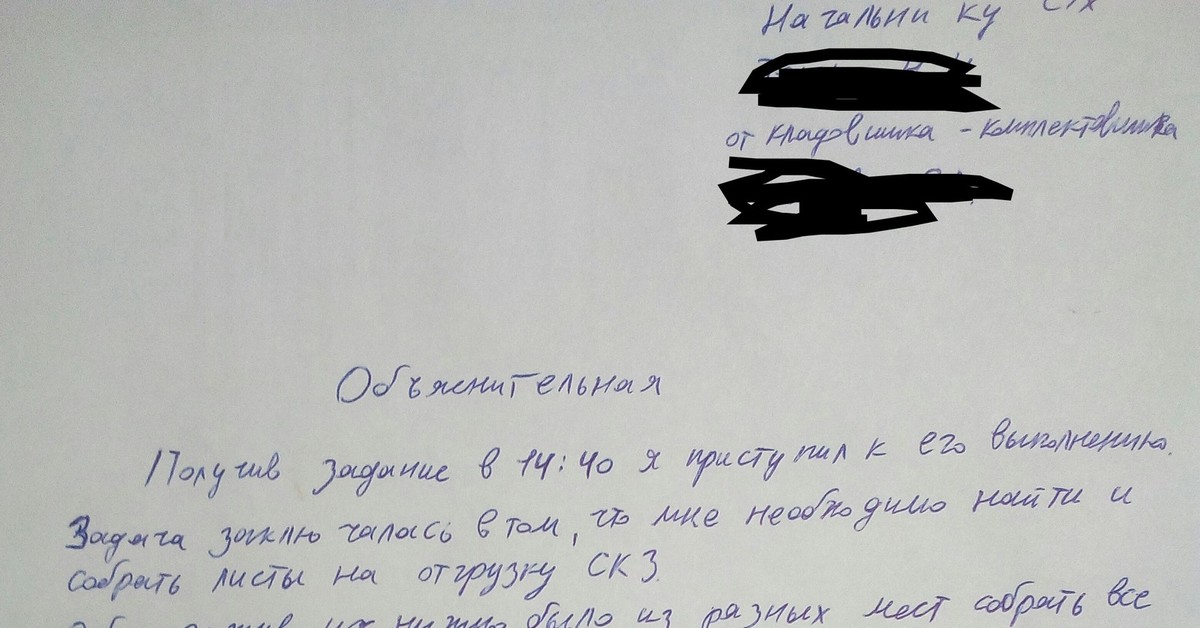 Начальнику
от кладовщика - комплектовщика
Объяснительная
Получив задание в 14:40 я приступил к его выполнению.
Задача заключалась в том, что мне необходимо найти и
собрать листы на отгрузку СКЗ.
их нужно было из разных мест собрать все